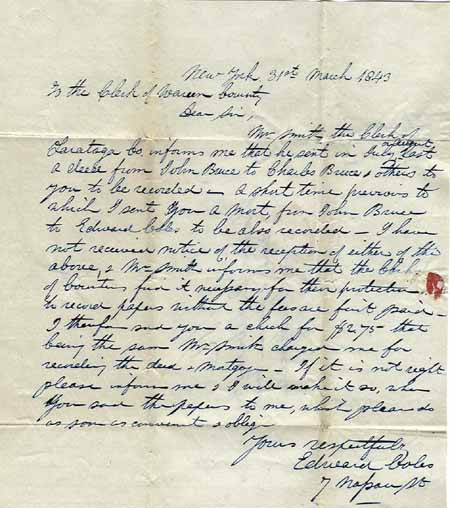 New York 31st March 1843
To the Clerk of Warren County
Dear Sir,
Mr Smith the Clerk of
Saratoga Co. informs me that he sent in July last
a deed from John Bruce to Charles Bruce & others to
you to be recorded - a short time previous to
which I sent you a Mort. from John Bruce
to Edward Coles to be also recorded - I have
not received notice of the reception of either of the
above, & Mr Smith informs me that the Clerks
of Counties find it necessary for their protection
to record papers without the fees are first paid -
I therefore send you a check for $2.75 that
being the sum Mr Smith charged me for
recording the deed & Mortgage - If it is not right
please inform me & I will make it so, when
you send the papers to me, which please do
as soon as convenient & oblige
Yours respectfully
Edward Coles
7 Nassau St